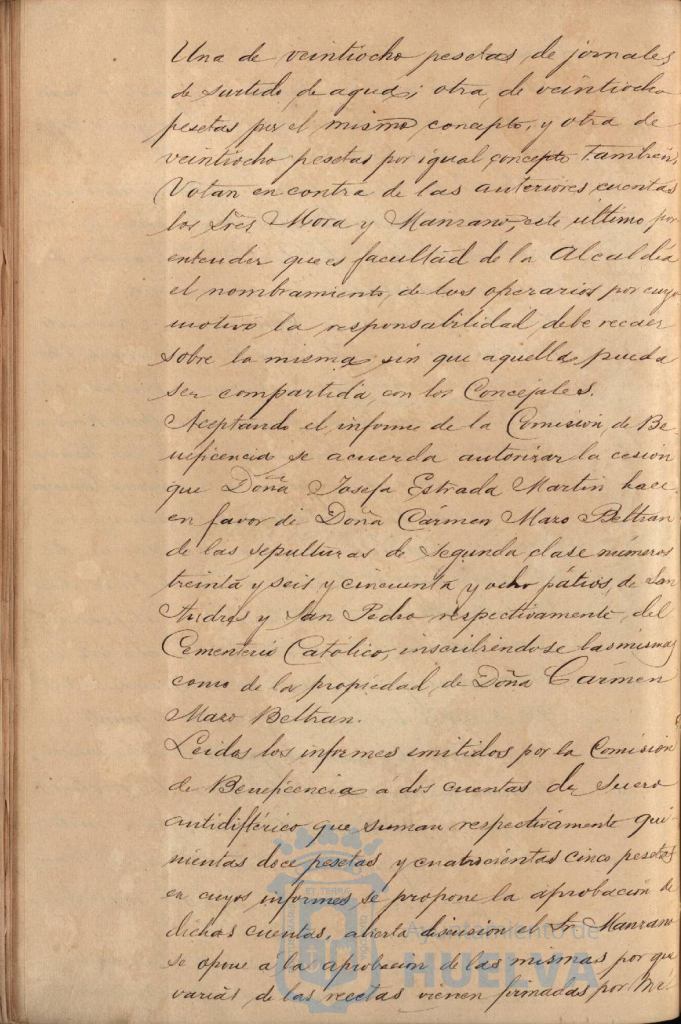 Una de veintiocho pesetas de jornales
de surtido de agua; otra, de veintiocho
pesetas por el mismo concepto, y otra de
veintiocho pesetas por igual concepto tambien.
Votan en contra de las anteriores cuentas
los Sres Mora y Manzano, este último por
entender que es facultad de la Alcaldía
el nombramiento de los operarios por cuyo
motivo la responsabilidad debe recaer
sobre la misma sin que aquella pueda
ser compartida con los Concejales.
Aceptando el informe de la Comisión de Be-
neficencia se acuerda autorizar la cesión
que Doña Josefa Estrada Martin hace
en favor de Doña Cármen Mazo Beltran
de las sepulturas de segunda clase números
treinta y seis y cincuenta y ocho pátios de San
Andres y San Pedro respectivamente, del
Cementerio Católico, inscribiéndose las mismas
como de la propiedad de Doña Cármen
Mazo Beltran.
Leidos los informes emitidos por la Comisión
de Beneficencia á dos cuentas de suero
antidiftérico que suman respectivamente qui-
nientas doce pesetas y cuatrocientas cinco pesetas
en cuyos informes se propone la aprobación de
dichas cuentas, abierta discusion el Sr. Manzano
se opone á la aprobacion de las mismas por que
varias de las recetas vienen firmadas por Mé-
Ayuntamiento de
HUELVA